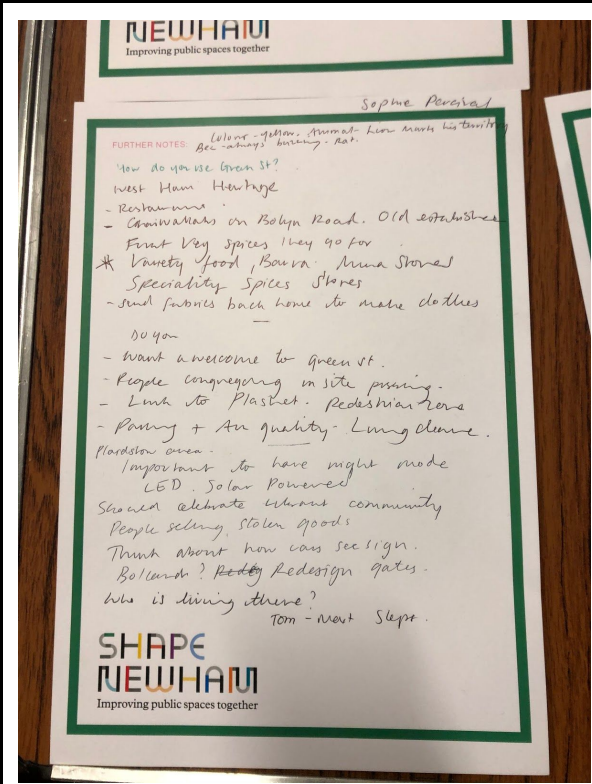 NEWHAM
Improving public spaces together
Sophie Percival
FURTHER NOTES: Colour - yellow. Animal - Lion marks his territory
Bee - always buzzing - Rat.
How do you use Green St?
West Ham Heritage
- Restaurants
- on Boleyn Road. Old established
Fruit Veg spices they go for
* Variety food, Stores
Speciality Spices Stores
- send fabrics back home to make clothes
Do you
- Want a welcome to Green St.
- People congregating in site
- Link to Plashet. Pedestrian zone
- + Air quality - Lung
area.
Important to have night mode
LED. Solar Powered
Should celebrate vibrant community
People selling stolen goods
Think about how cars see sign.
Bollards? Redesign gates.
Who is living there?
Tom - Next Steps.
SHAPE
NEWHAM
Improving public spaces together